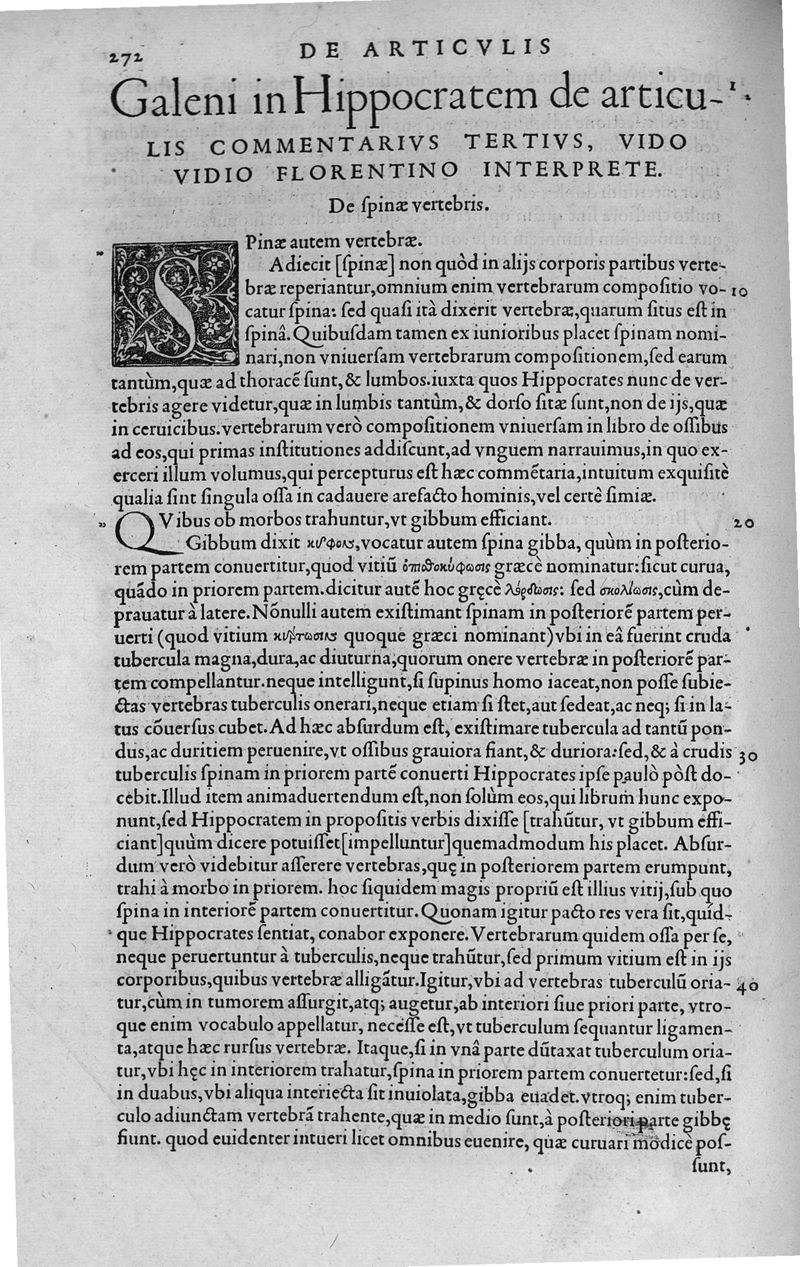 272 DE ARTICVLIS
Galeni in Hippocratem de articu- 1
LIS COMMENTARIVS TERTIVS, VIDO
VIDIO FLORENTINO INTERPRETE.
De ſpinæ vertebris.
SPinæ autem vertebræ.
Adiecit [ſpinæ] non quòd in alijs corporis partibus verte-
bræ reperiantur,omnium enim vertebrarum compoſitio vo- 10
catur ſpina: ſed quaſi ità dixerit vertebræ,quarum ſitus eſt in
ſpinâ.Quibuſdam tamen ex iunioribus placet ſpinam nomi-
nari,non vniuerſam vertebrarum compoſitionem,ſed earum
tantùm,quæ ad thoracẽ ſunt,& lumbos.iuxta quos Hippocrates nunc de ver-
tebris agere videtur,quæ in lumbis tantùm,& dorſo ſitæ ſunt,non de ijs,quæ
in ceruicibus.vertebrarum verò compoſitionem vniuerſam in libro de oſſibus
ad eos,qui primas inſtitutiones addiſcunt,ad vnguem narrauimus,in quo ex-
erceri illum volumus,qui percepturus eſt hæc commẽtaria,intuitum exquiſitè
qualia ſint ſingula oſſa in cadauere arefacto hominis,vel certè ſimiæ.
QVibus ob morbos trahuntur,vt gibbum efficiant. 20
Gibbum dixit κυφοὺς,vocatur autem ſpina gibba, quùm in poſterio-
rem partem conuertitur,quod vitiũ ὀπισθοκύφωσις græcè nominatur:ſicut curua,
quãdo in priorem partem.dicitur autẽ hoc gręcè λόρδωσις: ſed σκολίωσις,cùm de-
prauatur à latere.Nõnulli autem exiſtimant ſpinam in poſteriorẽ partem per-
uerti (quod vitium κύρτωσις quoque græci nominant) vbi in eâ fuerint cruda
tubercula magna,dura,ac diuturna,quorum onere vertebræ in poſteriorẽ par-
tem compellantur.neque intelligunt,ſi ſupinus homo iaceat,non poſſe ſubie-
ctas vertebras tuberculis onerari,neque etiam ſi ſtet,aut ſedeat,ac neq; ſi in la-
tus cõuerſus cubet.Ad hæc abſurdum eſt, exiſtimare tubercula ad tantũ pon-
dus,ac duritiem peruenire,vt oſſibus grauiora fiant,& duriora:ſed,& à crudis 30
tuberculis ſpinam in priorem partẽ conuerti Hippocrates ipſe paulò pòſt do-
cebit.Illud item animaduertendum eſt,non ſolùm eos,qui librum hunc expo-
nunt,ſed Hippocratem in propoſitis verbis dixiſſe [trahũtur, vt gibbum effi-
ciant]quùm dicere potuiſſet[impelluntur]quemadmodum his placet. Abſur-
dum verò videbitur aſſerere vertebras,quę in poſteriorem partem erumpunt,
trahi à morbo in priorem. hoc ſiquidem magis propriũ eſt illius vitij,ſub quo
ſpina in interiorẽ partem conuertitur.Quonam igitur pacto res vera ſit,quid-
que Hippocrates ſentiat, conabor exponere.Vertebrarum quidem oſſa per ſe,
neque peruertuntur à tuberculis,neque trahũtur,ſed primum vitium eſt in ijs
corporibus,quibus vertebræ alligãtur.Igitur,vbi ad vertebras tuberculũ oria- 40
tur,cùm in tumorem aſſurgit,atq; augetur,ab interiori ſiue priori parte, vtro-
que enim vocabulo appellatur, neceſſe eſt,vt tuberculum ſequantur ligamen-
ta,atque hæc rurſus vertebræ. Itaque,ſi in vnâ parte dũtaxat tuberculum oria-
tur,vbi hęc in interiorem trahatur,ſpina in priorem partem conuertetur:ſed,ſi
in duabus,vbi aliqua interiecta ſit inuiolata,gibba euadet.vtroq; enim tuber-
culo adiunctam vertebrã trahente,quæ in medio ſunt,à poſteriori parte gibbę
fiunt. quod euidenter intueri licet omnibus euenire, quæ curuari modicè poſ-
ſunt,